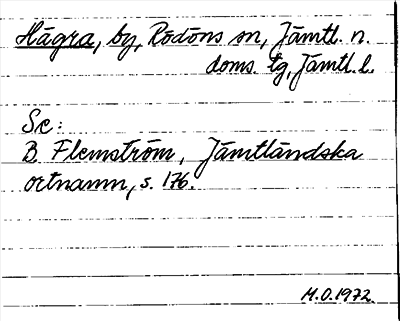 Hägra, by, Rödöns sn, Jämtl. n.
doms. tg, Jämtl. l.
Se:
B Flemström, Jämtländska
ortnamn, s. 176.
M.O.1972.